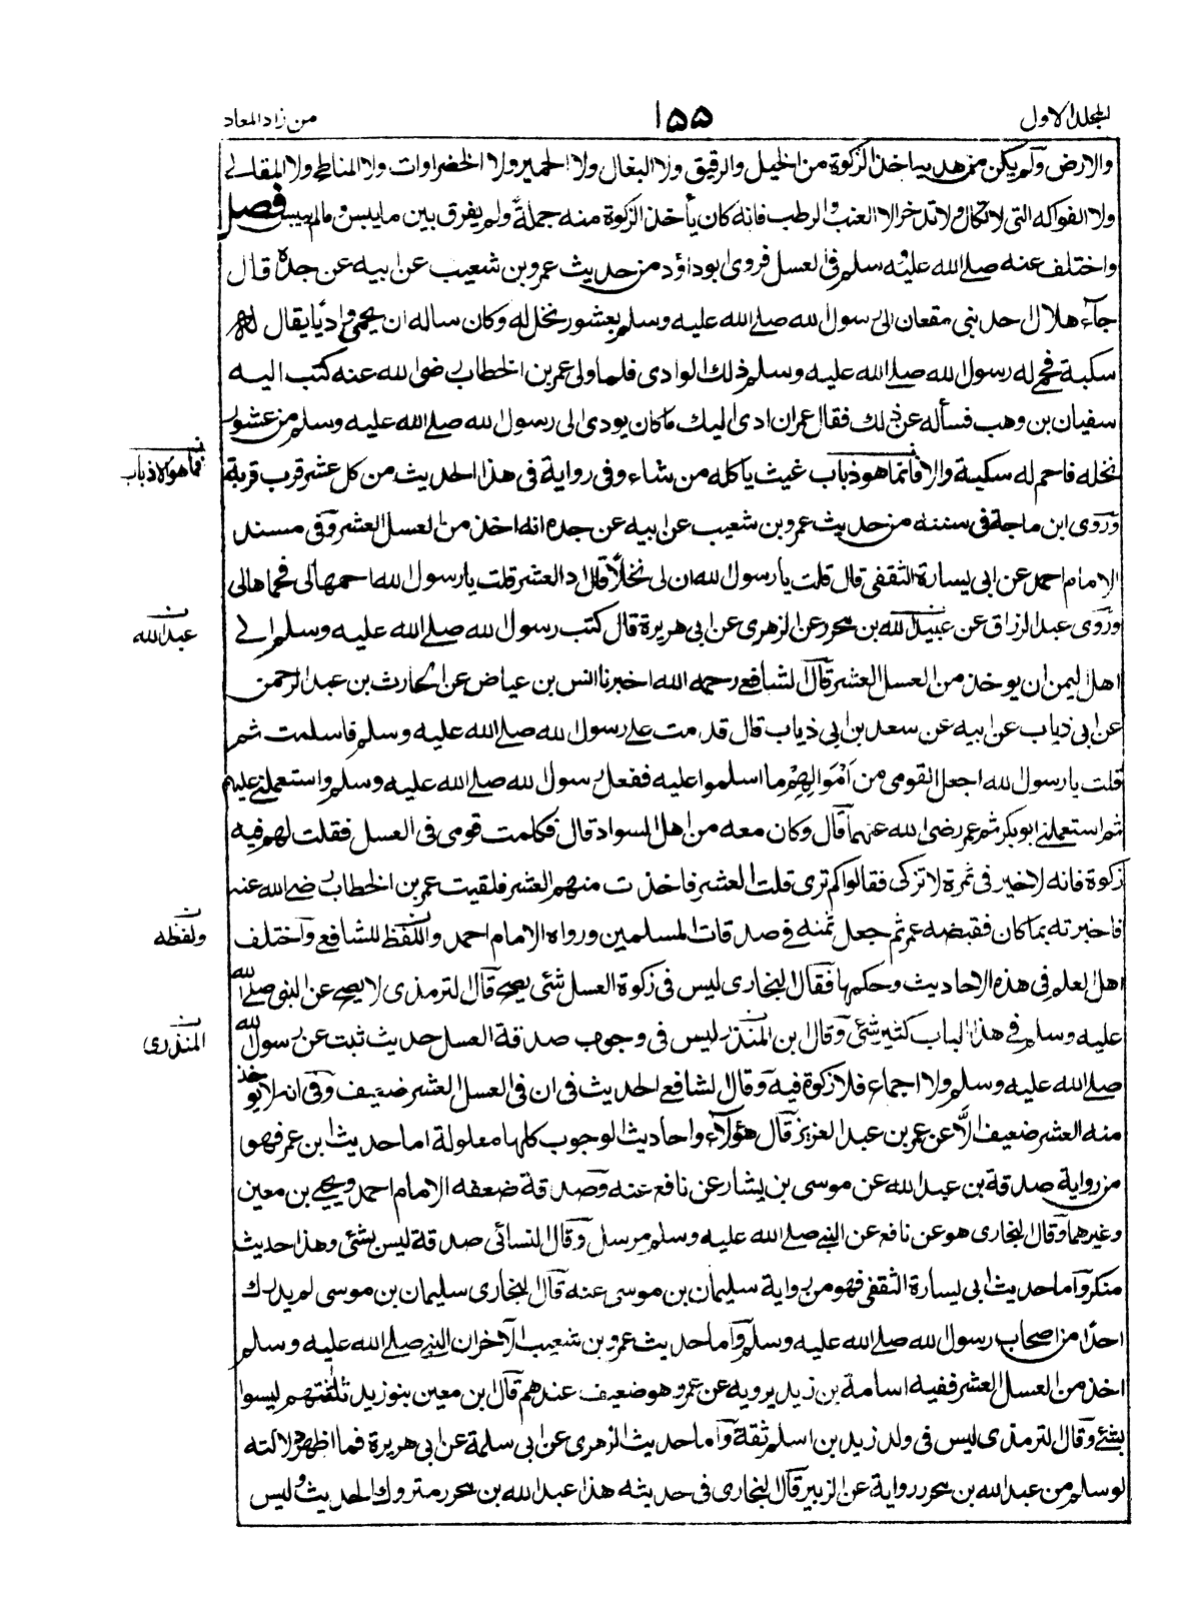 المجلد الاول
١٥٥
من زاد المعاد
والارض ولم يكن من هديه اخذ الزكوة من الخيل والرقيق ولا البغال ولا الحمير ولا الخضراوات ولا المناطح ولا المقاتى
ولا الفواكه التى لا تكال ولا تدخر الا العنب والرطب فانه كان يأخذ الزكوة منه جملة ولم يفرق بين ما يبس وما لم ييبس فصل
واختلف عنه صلے الله عليه وسلم فى العسل فروى ابوداؤد من حديث عمرو بن شعيب عن ابيه عن جده قال
جآء هلال احد بنى مقعان الى رسول الله صلے الله عليه وسلم بعشور نخل له وكان ساله ان يحمى واديا يقال له
سكبة فحمى له رسول الله صلے الله عليه وسلم ذلك الوادى فلما ولى عمر بن الخطاب رضى الله عنه كتب اليه
سفيان بن وهب فسأله عن ذلك فقال عمر ان ادى اليك ما كان يودى الى رسول الله صلے الله عليه وسلم من عشور
نخله فاحم له سكبة والا فانما هو ذباب غيث ياكله من شاء وفى رواية فى هذا الحديث من كل عشر قرب قربة
فما هو الا ذباب
وروى ابن ماجة فى سننه من حديث عمرو بن شعيب عن ابيه عن جده انه اخذ من العسل العشر وفى مسند
الامام احمد عن ابى يسارة الثقفى قال قلت يا رسول الله ان لى نخلا قال اد العشر قلت يا رسول الله احمها لى فحماها لى
وروى عبد الرزاق عن عبيد الله بن محرر عن الزهرى عن ابى هريرة قال كتب رسول الله صلے الله عليه وسلم الے
عبد الله
اهل اليمن ان يوخذ من العسل العشر قال الشافعے رحمه الله اخبرنا انس بن عياض عن الحارث بن عبد الرحمن
عن ابى ذياب عن ابيه عن سعد بن ابى ذياب قال قدمت علے رسول الله صلے الله عليه وسلم فاسلمت ثم
قلت يا رسول الله اجعل لقومى من اَمْوَالِهِمْ ما اسلموا عليه ففعل رسول الله صلے الله عليه وسلم واستعملنے عليهم
ثم استعملنے ابو بكر ثم عمر رضى الله عنهما قال وكان معه من اهل السواد قال فكلمت قومى فى العسل فقلت لهم فيه
زكوة فانه لا خير فى ثمرة لا تزكى فقالوا كم ترى قلت العشر فاخذت منهم العشر فلقيت عمر بن الخطاب رضے الله عنه
فاخبرته بما كان فقبضه عمر ثم جعل ثمنه فے صدقات المسلمين ورواه الامام احمد واللفظ للشافعے واختلف
ولفظه
اهل العلم فى هذه الاحاديث وحكمها فقال البخارى ليس فى زكوة العسل شئى يصح قال الترمذى لا يصح عن النبى صلے الله
عليه وسلم فے هذا الباب كثير شئى وقال ابن المنذر ليس فى وجوب صدقة العسل حديث ثبت عن رسول الله
المنذرى
صلے الله عليه وسلم ولا اجماع فلا زكوة فيه وقال الشافعے الحديث فى ان فى العسل العشر ضعيف وفى انه لا يوخذ
منه العشر ضعيف الا عن عمر بن عبد العزيز قال هؤلآء واحاديث الوجوب كلها معلولة اما حديث ابن عمر فهو
من رواية صدقة بن عبد الله عن موسى بن يشار عن نافع عنه وصدقة ضعفه الامام احمد ويحيے بن معين
وغيرهما وقال البخارى هو عن نافع عن النبے صلے الله عليه وسلم مرسل وقال النسائى صدقة ليس بشئى وهذا حديث
منكر واما حديث ابى يسارة الثقفى فهو من رواية سليمان بن موسى عنه قال البخارى سليمان بن موسى لم يدرك
احدًا من اصحاب رسول الله صلے الله عليه وسلم واما حديث عمرو بن شعيب الآخر ان النبے صلے الله عليه وسلم
اخذ من العسل العشر ففيه اسامة بن زيد يرويه عن عمرو وهو ضعيف عندهم قال ابن معين بنو زيد ثلثتهم ليسوا
بشئے وقال الترمذى ليس فى ولد زيد بن اسلم ثقة واما حديث الزهرى عن ابى سلمة عن ابى هريرة فما اظهر دلالته
لو سلم من عبد الله بن محرر رواية عن الزبير قال البخارى فى حديثه هذا عبد الله بن محرر متروك الحديث وليس